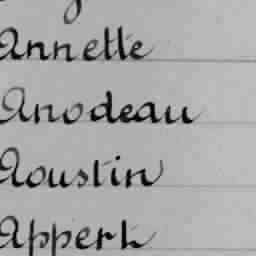 Annette
Anodeau
Aoustin
Appert